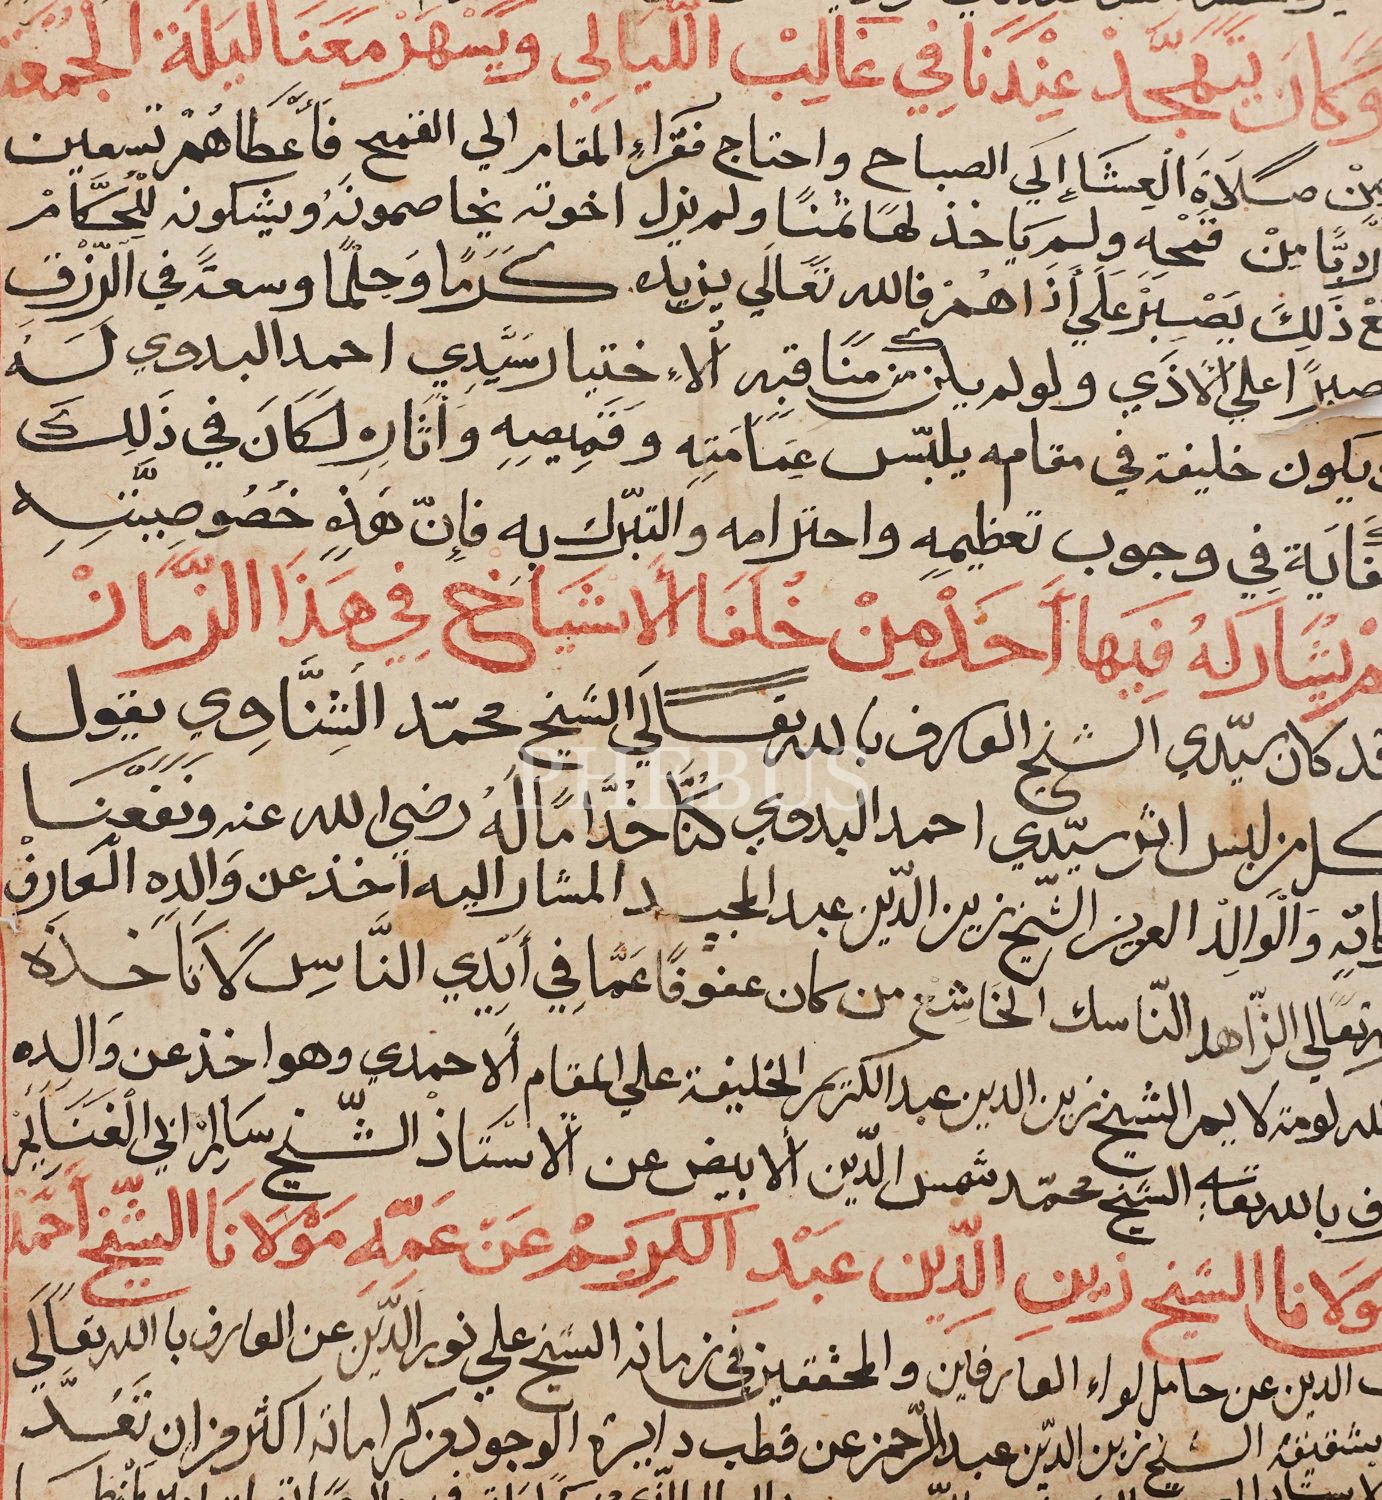 وَكَانَ يَتَهَجَّدْ عِنْدَنَا فِي غَالِبْ اللَّيَالِي وَيَسْهَرْ مَعَنَا لَيْلَة الْجُمُعَة
مِنْ صَلَاةِ الْعِشَاءِ إِلَي الصباح واحتاج فقَرَاءِ المقام الي القمح فَأَعْطَاهُمْ تسعين
مِنْ قمْحِه ولم يَاخذ لهَا ثمْنًا ولم يزل اخوته يخاصمونَهُ ويشكونه لِلْحكَّامْ
ذَلِكَ يَصْبِرْ عَلَي أَذَاهُمْ فالله تَعَالَي يزيده كَرَمًا وَحِلْمًا وسعةً في الرِّزْقِ
صبرًا علي الأذَي ولو لم يكن من مَنَاقبه الا ختيار سَيِّدِي احمد البدوي لَهُ
يكون خليفة في مقامه يلبّس عِمَامَتِه وقَمِيصِهِ وَأَثَارِه لَكَانَ فِي ذَلِكَ
كفَايَة فِي وجوب تعظيمِهِ واحترامه والتبّرك بِهِ فَإِنّ هَذِهِ خُصُوصِيَّتِهِ
يُشَارَكهُ فِيَها أَحَدْ مِنْ خُلَفَا الأَشْيَاخِ فِي هَذَا الزَّمَانْ
قد كان سيّدي الشيخ العارف بالله تعالَي الشيخ محمّد الشِنَّاوِي يقول
كل من لبس اثر سيّدي احمد البدوي كُنَّا خُدَّامًا لَهُ رضي الله عنه وَنَفَعنَا
وَالْوَالِدْ العزيز الشّيخ زين الدّين عبد المجيد المشار اليه أخذ عن وَالِدِهِ الْعَارِفْ
تعالي الزّاهد النّاسك الخَاشِعْ من كان عفوفًا عَمَّا فِي أَيْدِي النَّاسِ لَا تَاخذه
لله لومة لايم الشيخ زين الدين عبد الكريم الخليفة علي المقام الاحمدي وهو اخذ عن وَالده
بالله تعالي الشيخ محمّد شمس الدّين الابيض عن الاسْتَاذْ الشّيخ سَالِمْ ابي الْغَنَايِمْ
مَوْلَانا الشيخ زينِ الدِّين عَبْدِ الكِرِيمْ عَنْ عَمِّه مَوْلَانَا الشّيْخ أحمَد
الدين عن حامل لواء العارفين والمحققين في زمانه الشيخ علي نور الدّين عن العارف بالله تعَالَي
شقيقه الشيخ زين الدّين عبد الرّحمن عن قطب دايرة الوجود من كراماته اكثر من ان تُعَدَّ